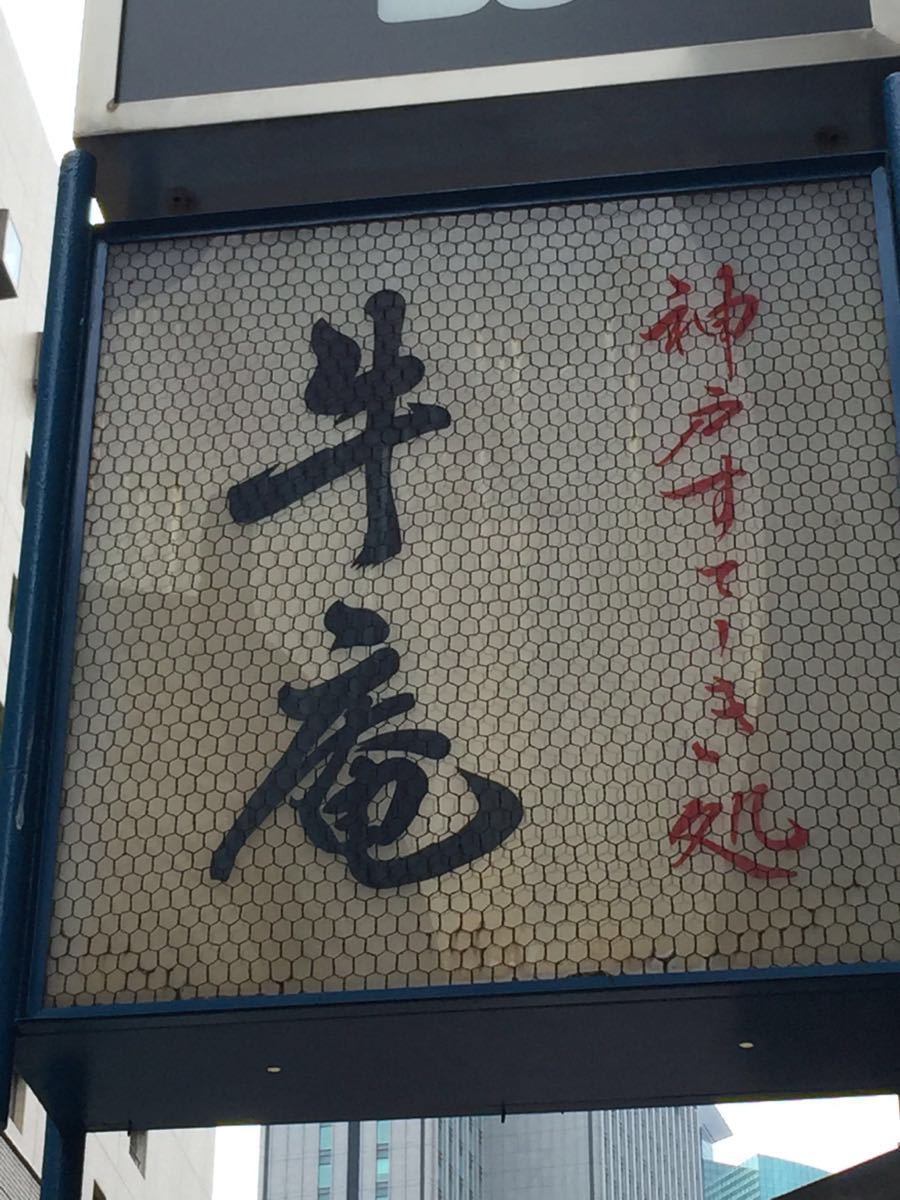 神戸すてーき処
牛庵